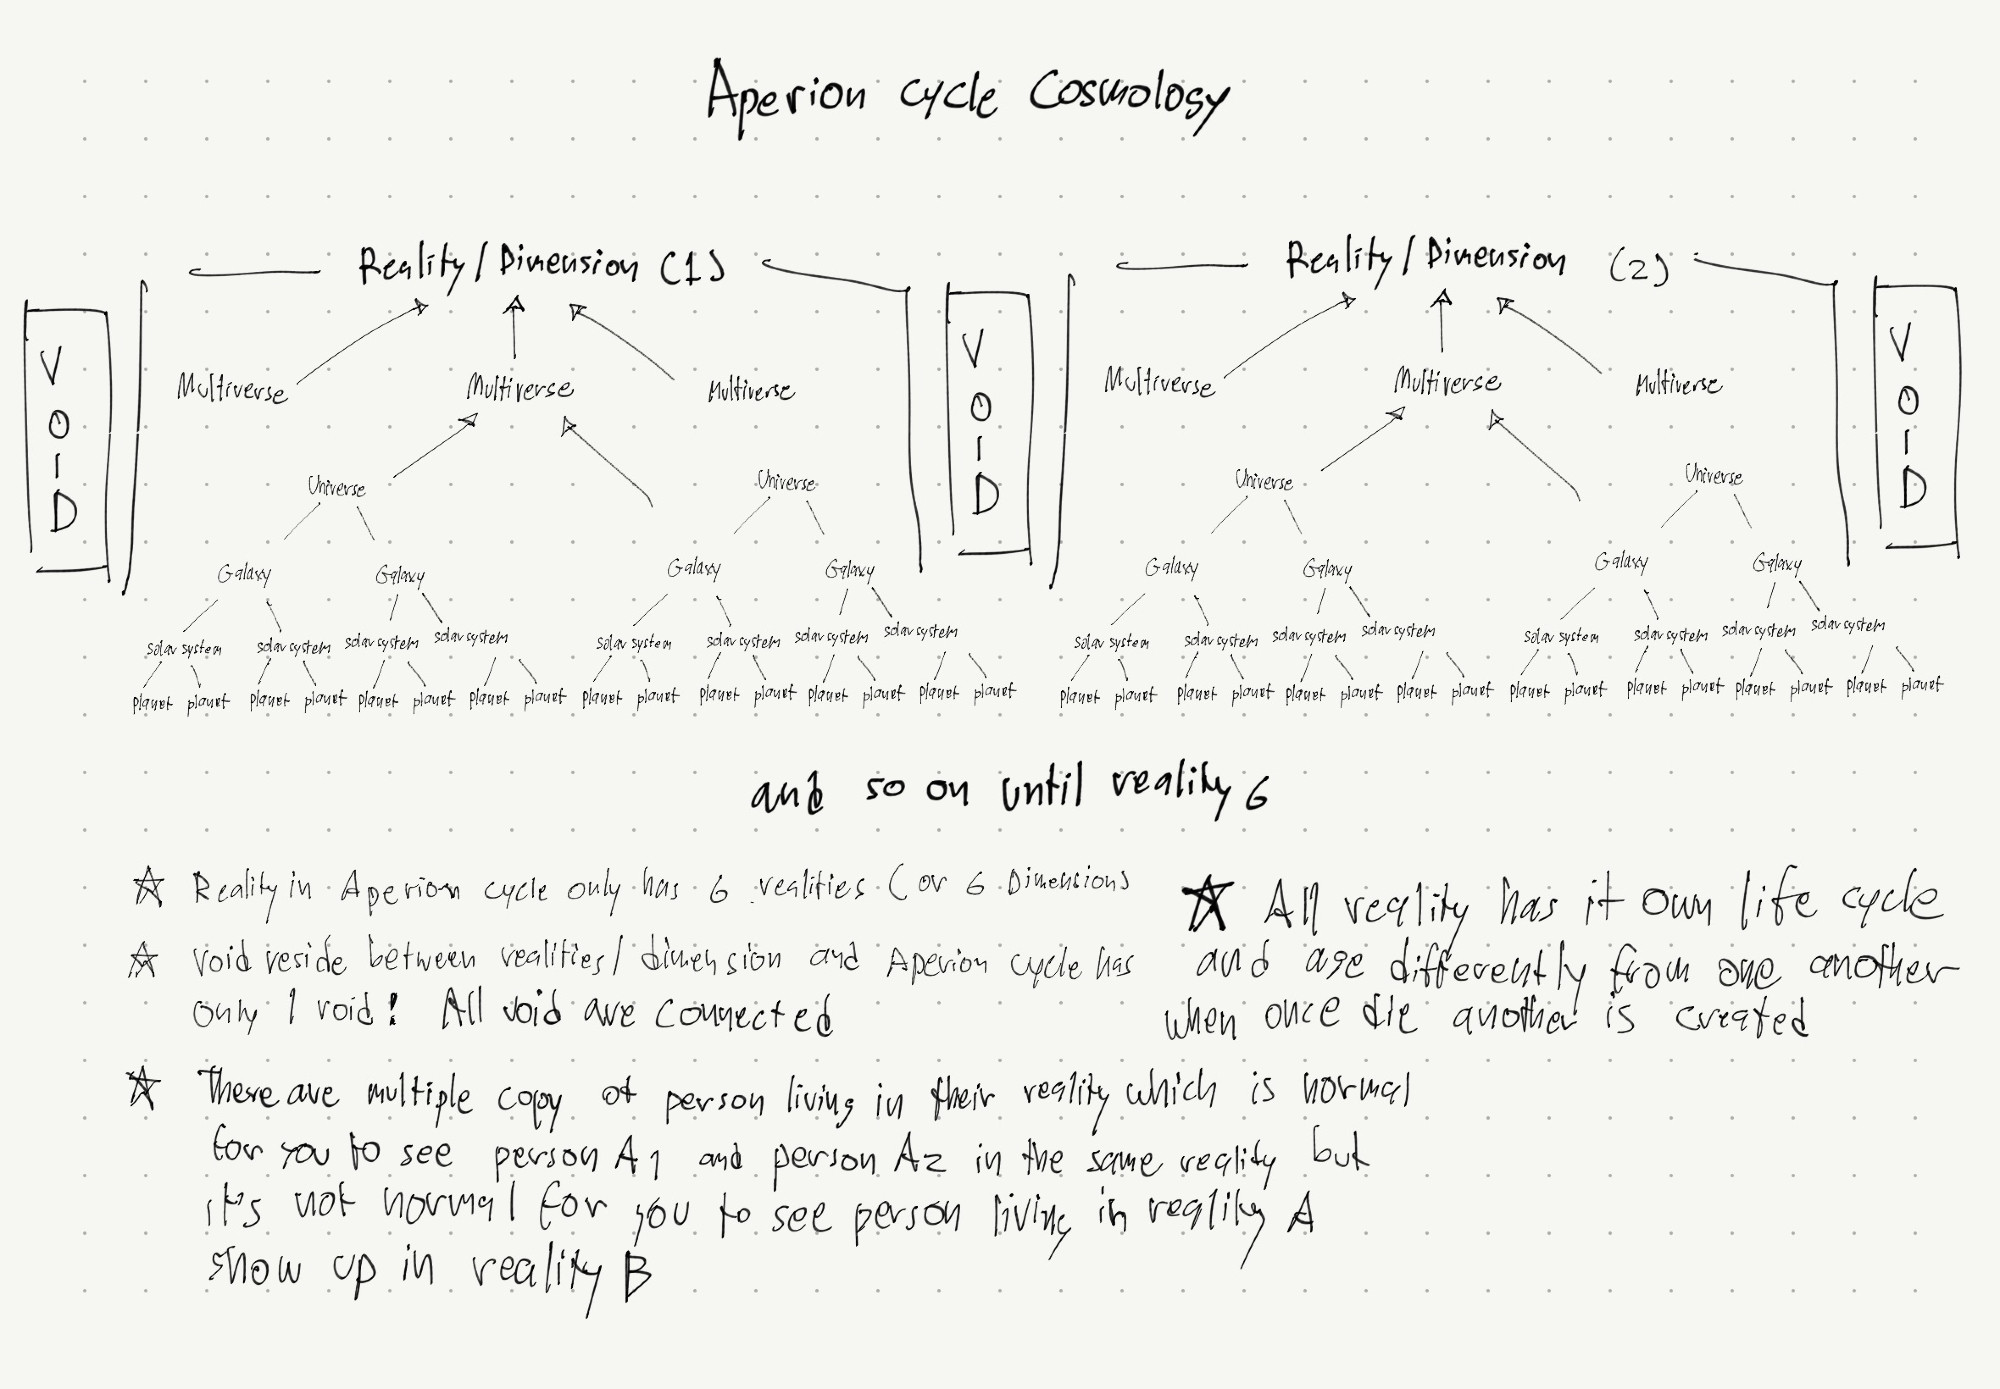 Aperion cycle Cosmology
Reality/Dimension (1)
Reality/Dimension (2)
VOID
VOID
VOID
Multiverse Multiverse Multiverse
Multiverse Multiverse Multiverse
Universe Universe
Universe Universe
Galaxy Galaxy Galaxy Galaxy
Galaxy Galaxy Galaxy Galaxy
solar system solar system solar system solar system solar system solar system solar system solar system
solar system solar system solar system solar system solar system solar system solar system solar system
planet planet planet planet planet planet planet planet planet planet planet planet planet planet planet planet
planet planet planet planet planet planet planet planet planet planet planet planet planet planet planet planet
and so on until reality 6
☆ Reality in Aperion cycle only has 6 realities (or 6 Dimensions
☆ Void reside between realities/dimension and Aperion cycle has
only 1 void! All void are connected
☆ There are multiple copy of person living in their reality which is normal
for you to see person A1 and person A2 in the same reality but
it's not normal for you to see person living in reality A
show up in reality B
☆ All reality has it own life cycle
and age differently from one another
when once die another is created